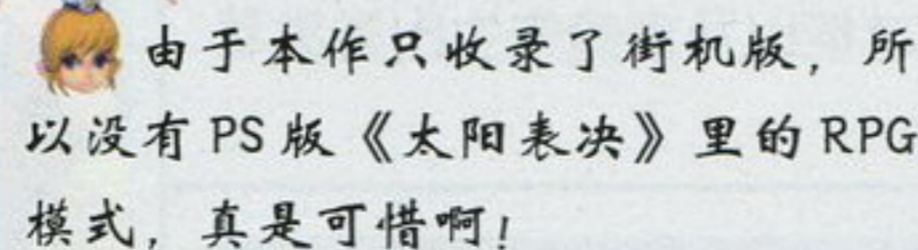 由于本作只收录了街机版，所
以没有PS版《太阳表决》里的RPG
模式，真是可惜啊！